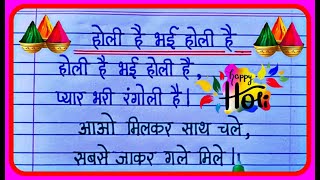 होली है भई होली है
होली है भई होली है,
प्यार भरी रंगोली है।
happy
Holi
आओ मिलकर साथ चले,
सबसे जाकर गले मिले।।